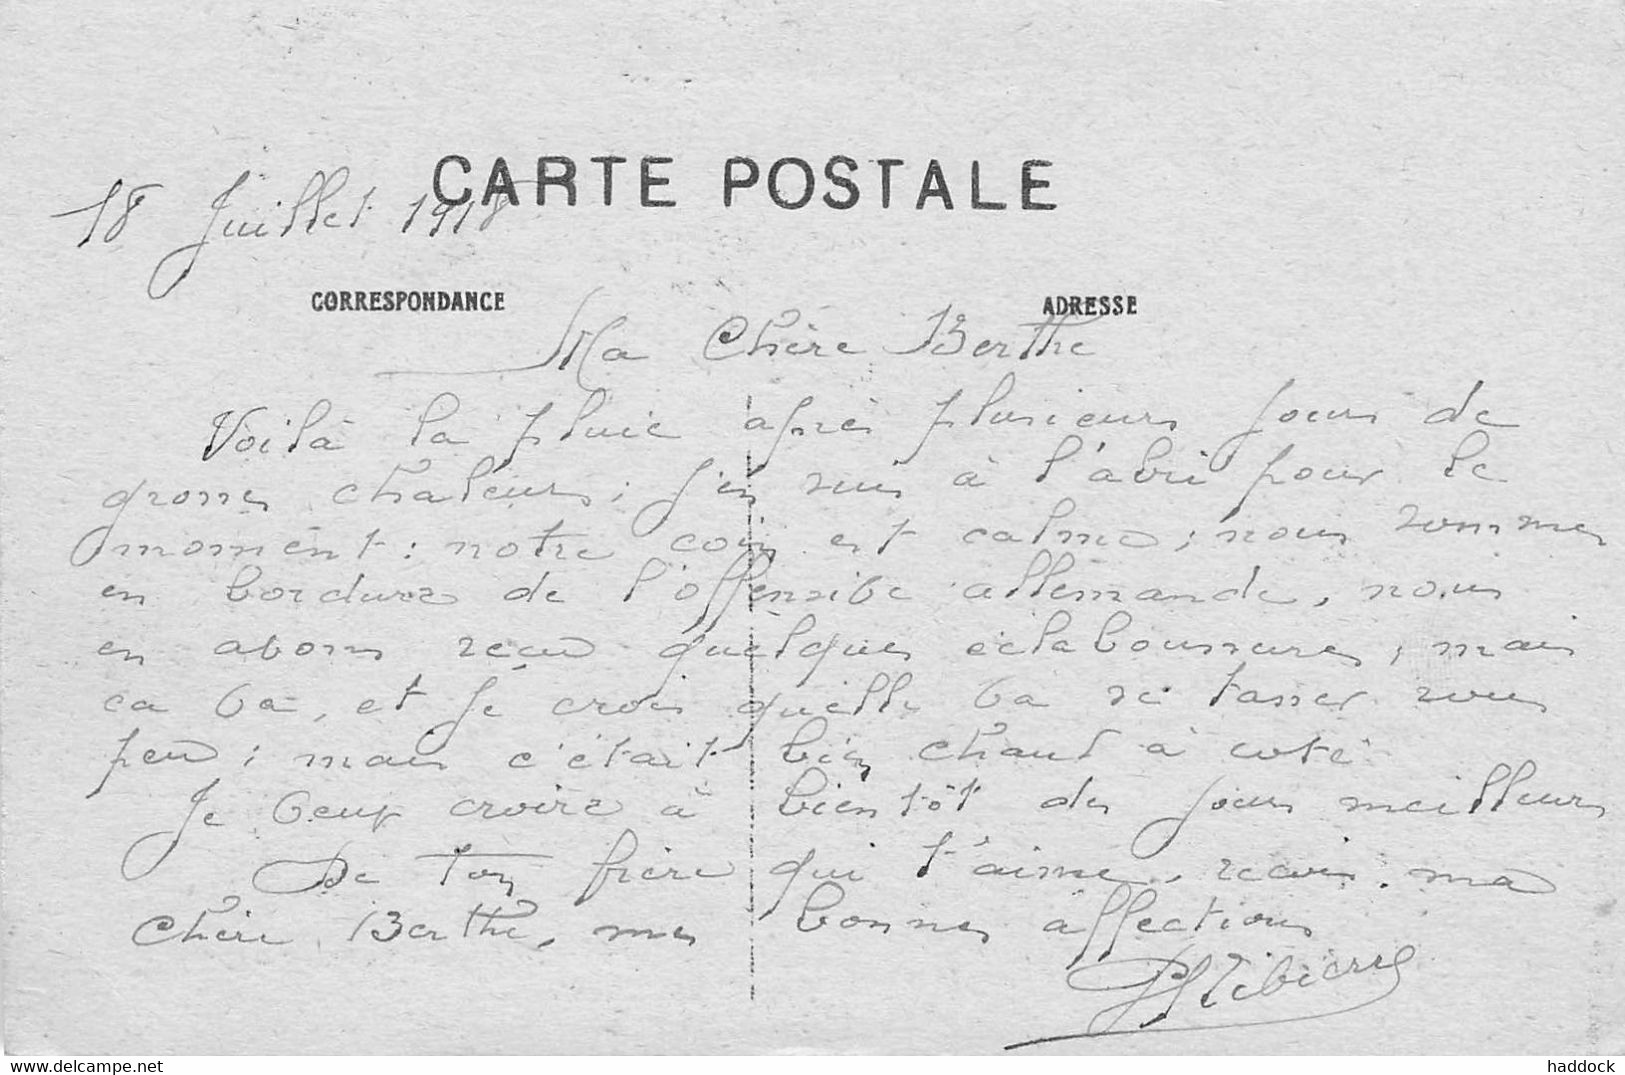 CARTE POSTALE
18 Juillet 1918
CORRESPONDANCE ADRESSE
Ma Chère Berthe
Voilà la pluie après plusieurs jours de
grosses chaleurs; j'en suis à l'abri pour le
moment: notre coin est calme; nous sommes
en bordure de l'offensive allemande, nous
en avons reçu quelques éclaboussures, mais
ca va, et je crois quelle va se tasser sous
peu; mais c'était bien chaud à coté
Je veux croire à bientôt des jours meilleurs
De ton frère qui t'aime, recois. ma
Chère Berthe, mes bonnes affections
www.delcampe.net haddock